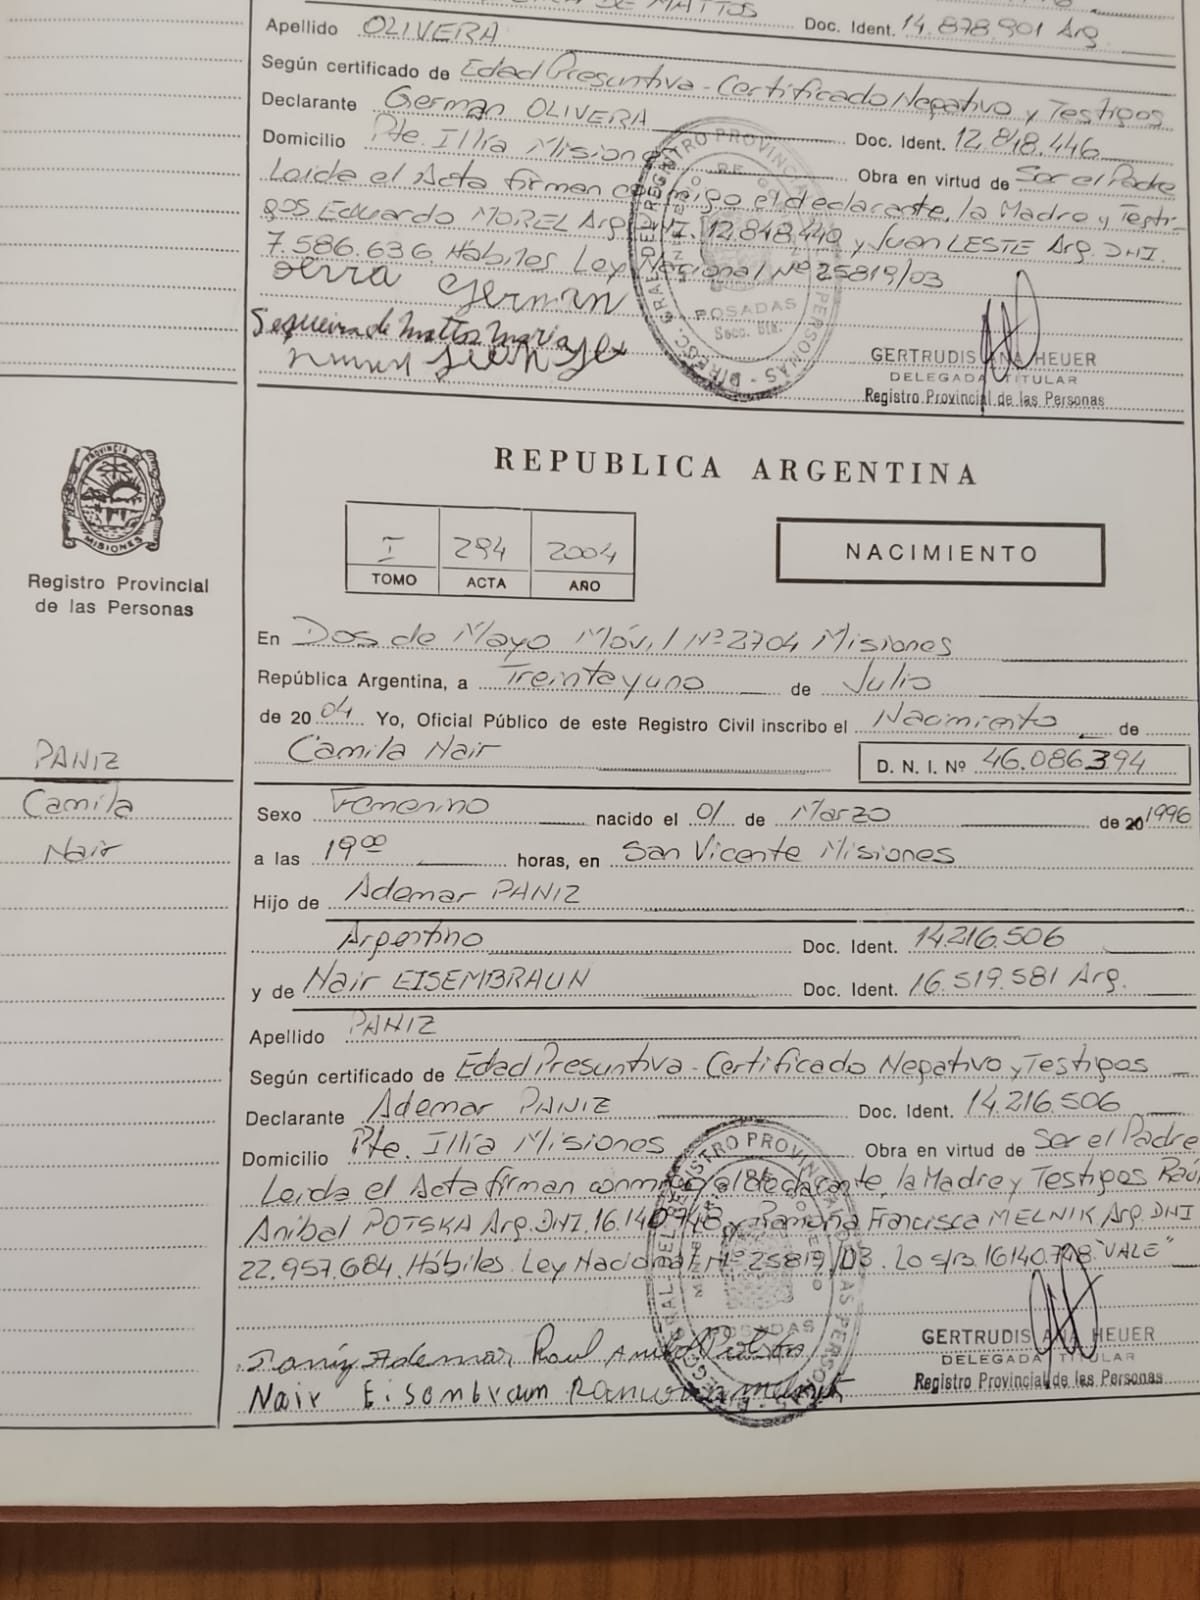 DE MATTOS Doc. Ident. 14.878.901 Arg.
Apellido OLIVERA
Según certificado de Edad Presuntiva - Certificado Negativo y Testigos
Declarante German OLIVERA Doc. Ident. 12.848.446
Domicilio Pte. Illía Misiones Obra en virtud de Ser el Padre
Leída el Acta firman conmigo el declarante, la Madre y Testi-
gos Eduardo MOREL Arg. DNI. 12.848.440 y Juan LESTE Arg. DNI.
7.586.636. Hábiles Ley Nacional Nº 25819/03
German
Sequeira de Mattos Maria
GERTRUDIS ANA HEUER
DELEGADA TITULAR
Registro Provincial de las Personas
POSADAS
PROVINCIA DE
MISIONES
Registro Provincial
de las Personas
REPUBLICA ARGENTINA
I 294 2004
TOMO ACTA AÑO
NACIMIENTO
PANIZ
Camila
Nair
En Dos de Mayo Móvil Nº 2704 Misiones
República Argentina, a Treinta y uno de Julio
de 2004 Yo, Oficial Público de este Registro Civil inscribo el Nacimiento de
Camila Nair D. N. I. Nº 46.086.394
Sexo Femenino nacido el 01 de Marzo de 20 1996
a las 19 00 horas, en San Vicente Misiones
Hijo de Ademar PANIZ
Argentino Doc. Ident. 14.216.506
y de Nair EISEMBRAUN Doc. Ident. 16.519.581 Arg.
Apellido PANIZ
Según certificado de Edad Presuntiva - Certificado Negativo y Testigos
Declarante Ademar PANIZ Doc. Ident. 14.216.506
Domicilio Pte. Illía Misiones Obra en virtud de Ser el Padre
Leída el Acta firman conmigo el declarante, la Madre y Testigos Raúl
Anibal POTSKA Arg. DNI. 16.140.748 y Ramona Francisca MELNIK Arg. DNI
22.957.684. Hábiles Ley Nacional Nº 25819/03. Lo s/b 16140.748 "VALE"
Paniz Ademar Raul Anibal
Nair Eisembraun Ramona
GERTRUDIS ANA HEUER
DELEGADA TITULAR
Registro Provincial de las Personas
POSADAS